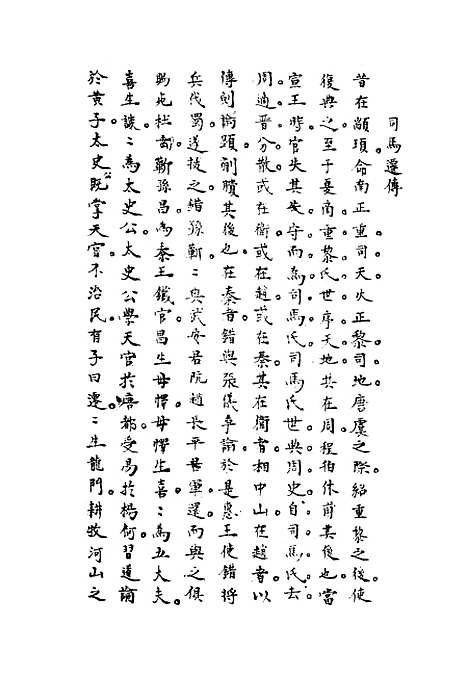 司馬遷傳
昔在顓頊命南正重司天火正黎司地唐虞之際紹重黎之後使
復典之至于夏商重黎氏世序天地其在周程伯休甫其後也當
宣王時官失其守而為司馬氏司馬氏世典周史自司馬氏去
周適晉分散或在衛或在趙或在秦其在衛者相中山在趙者以
傳劍論顯蒯聵其後也在秦者錯與張儀爭論於是惠王使錯將
兵伐蜀遂拔之錯孫蘄〻與武安君阬趙長平軍還而與之俱
賜死杜郵蘄孫昌為秦王鐵官昌生毋懌毋懌生喜〻為五大夫
喜生談〻為太史公太史公學天官於唐都受易於楊何習道論
於黃子太史公既掌天官不治民有子曰遷〻生龍門耕牧河山之